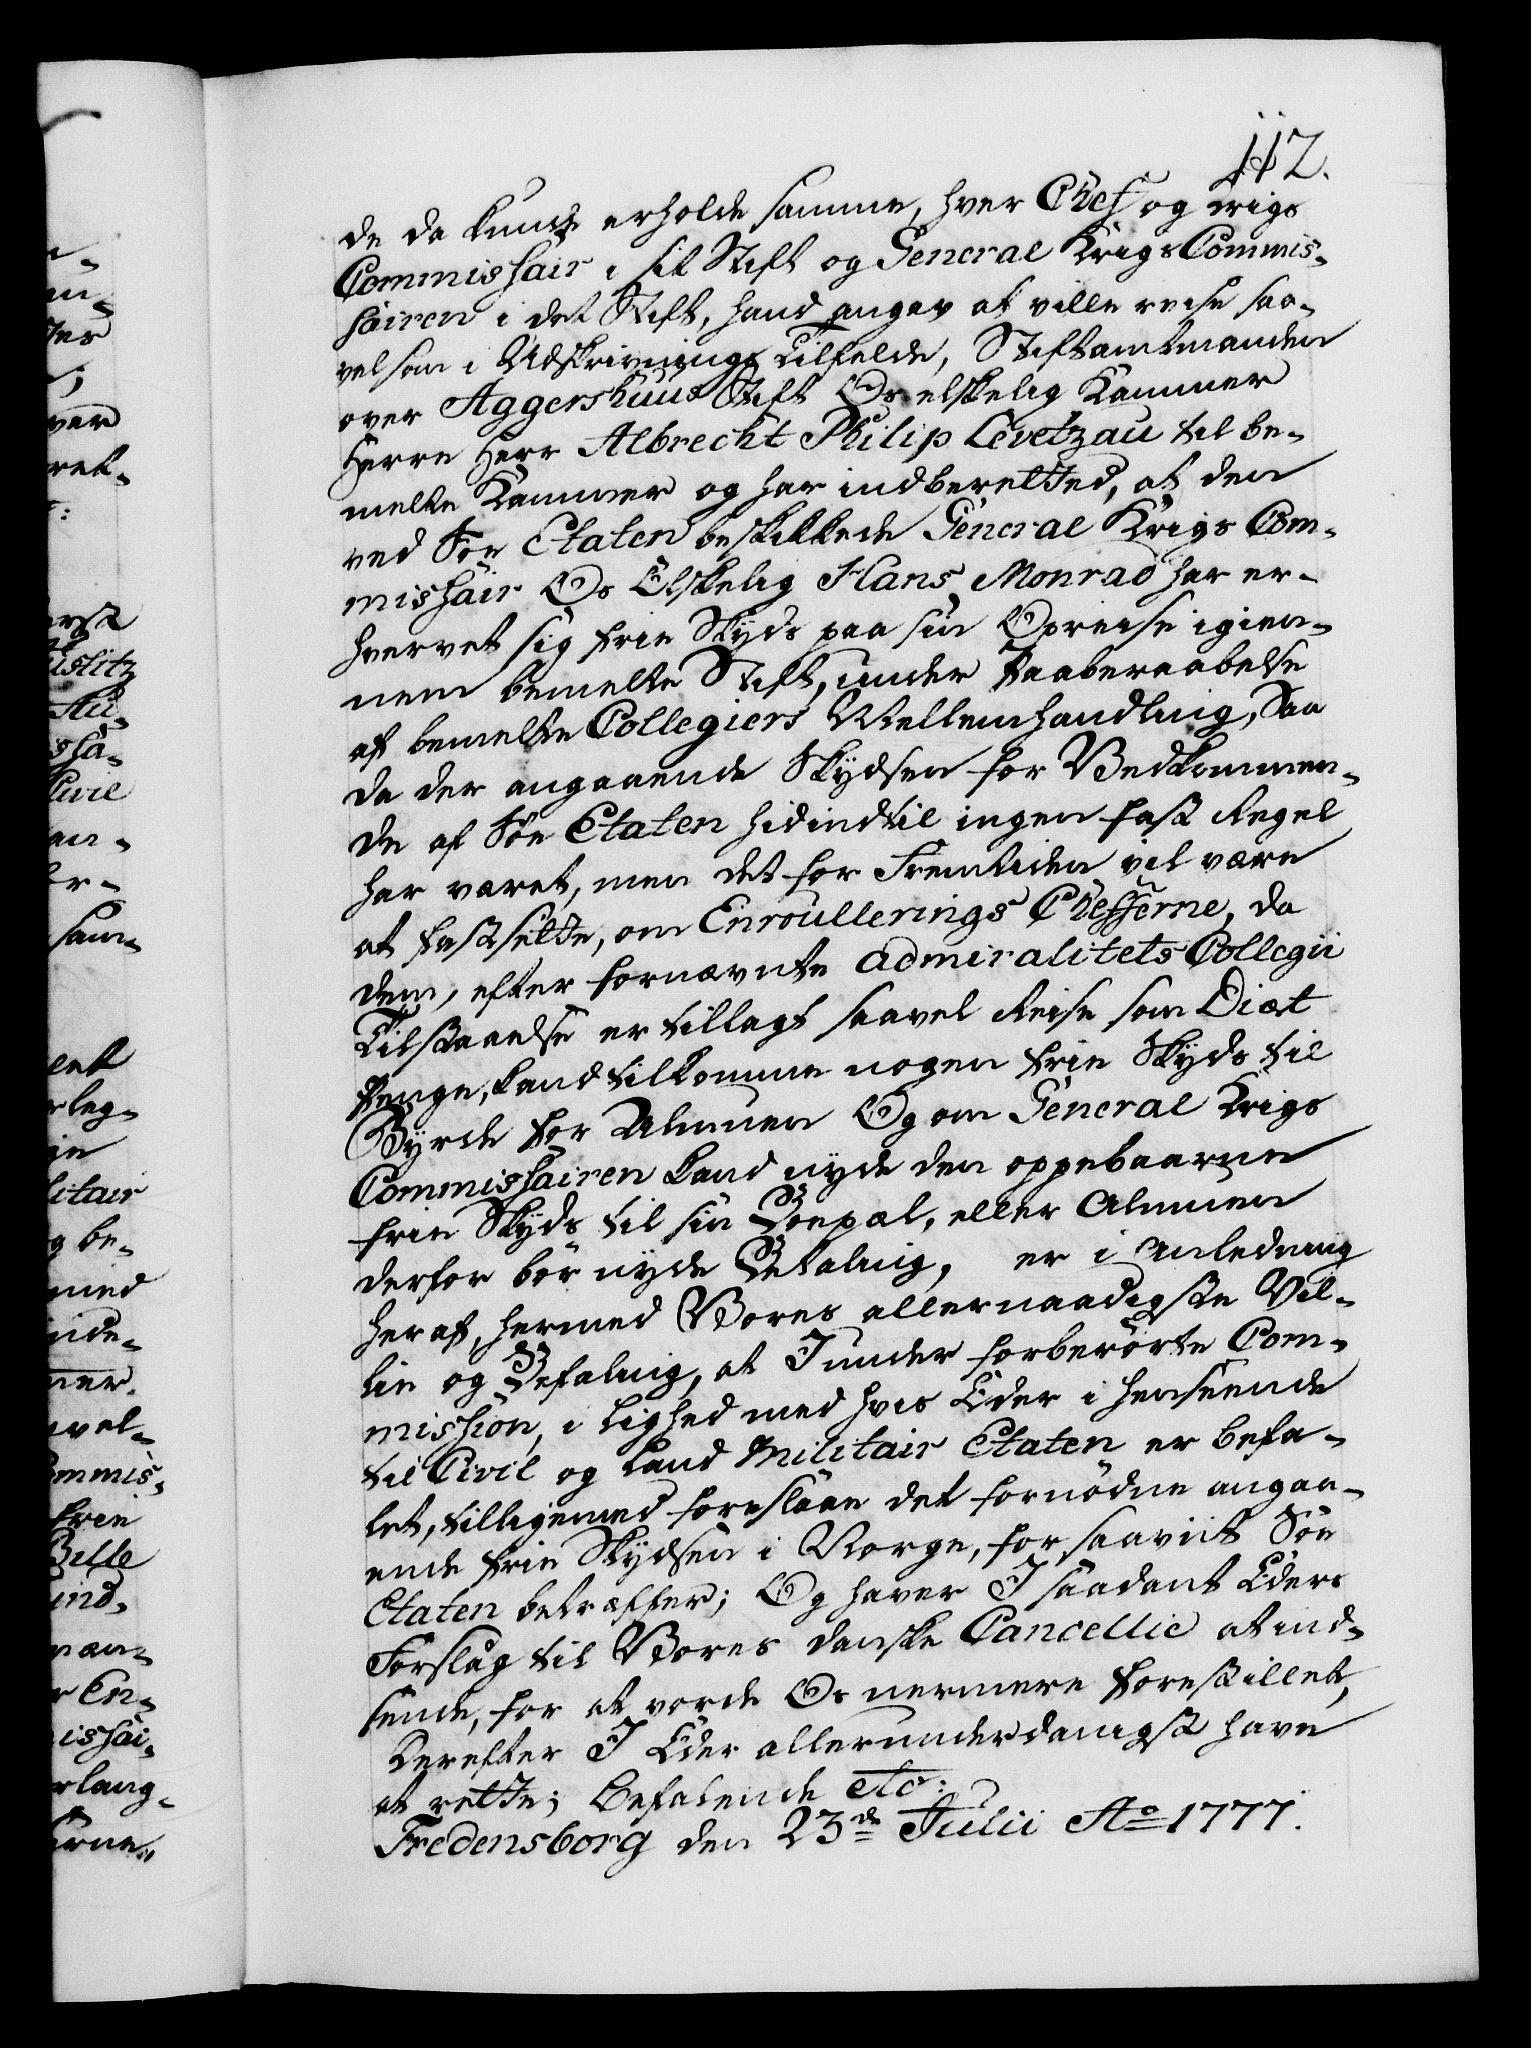 112.
de da kunde erholde samme, hver Chef og Krigs
Commissair i sit Stift og General Krigs Commis-
sairen i det Stift, hand angav at ville reise saa-
vel som i Udskrivnings Tilfelde, Stiftamtmanden
over Aggershuus Stift Os elskelig Kammer
Herre Herr Albrecht Philip Levetzau til be-
melte Kammer og har indberetted, at den
ved Søe Etaten beskikkede General Krigs Com-
missair Os Elskelig Hans Monrad har er-
hvervet sig frie Skyds paa sin Opreise igien-
nem bemelte Stift, under Paaberaabelse
af bemelte Collegiers Mellemhandling, Saa
da der angaaende Skydsen for Vedkommen-
de af Søe Etaten hidindtil ingen fast Regel
har været, men det for Fremtiden vil være
at fastsette, om Enroullerings Chefferne, da
dem, efter fornævnte Admiralitets Collegii
Tilstaaelse er tillagt saavel Reise som Diæt
Penge, kand tilkomme nogen frie Skyds til
Byrde for Almuen Og om General Krigs
Commissairen kand nyde den oppebaarne
frie Skyds til sin Boepæl, eller Almuen
derfor bør nyde Betaling, er i Anledning
heraf, hermed Vores allernaadigste Vil-
lie og Befaling, at I under forberørte Com-
mission, i Lighed med hvis Eder i henseende
til Civil og Land Militair Etaten er befa-
let, tilligemed foreslaae det fornødne angaa-
ende frie Skydsen i Norge, for saavidt Søe
Etaten betræffer; Og haver I saadant Eders
Forslag til Vores danske Cancellie at ind-
sende, for at vorde Os nermere forestillet,
Derefter I Eder allerunderdanigst have
at rette; Befalende etc:
Fredensborg den 23de Julii Ao 1777.